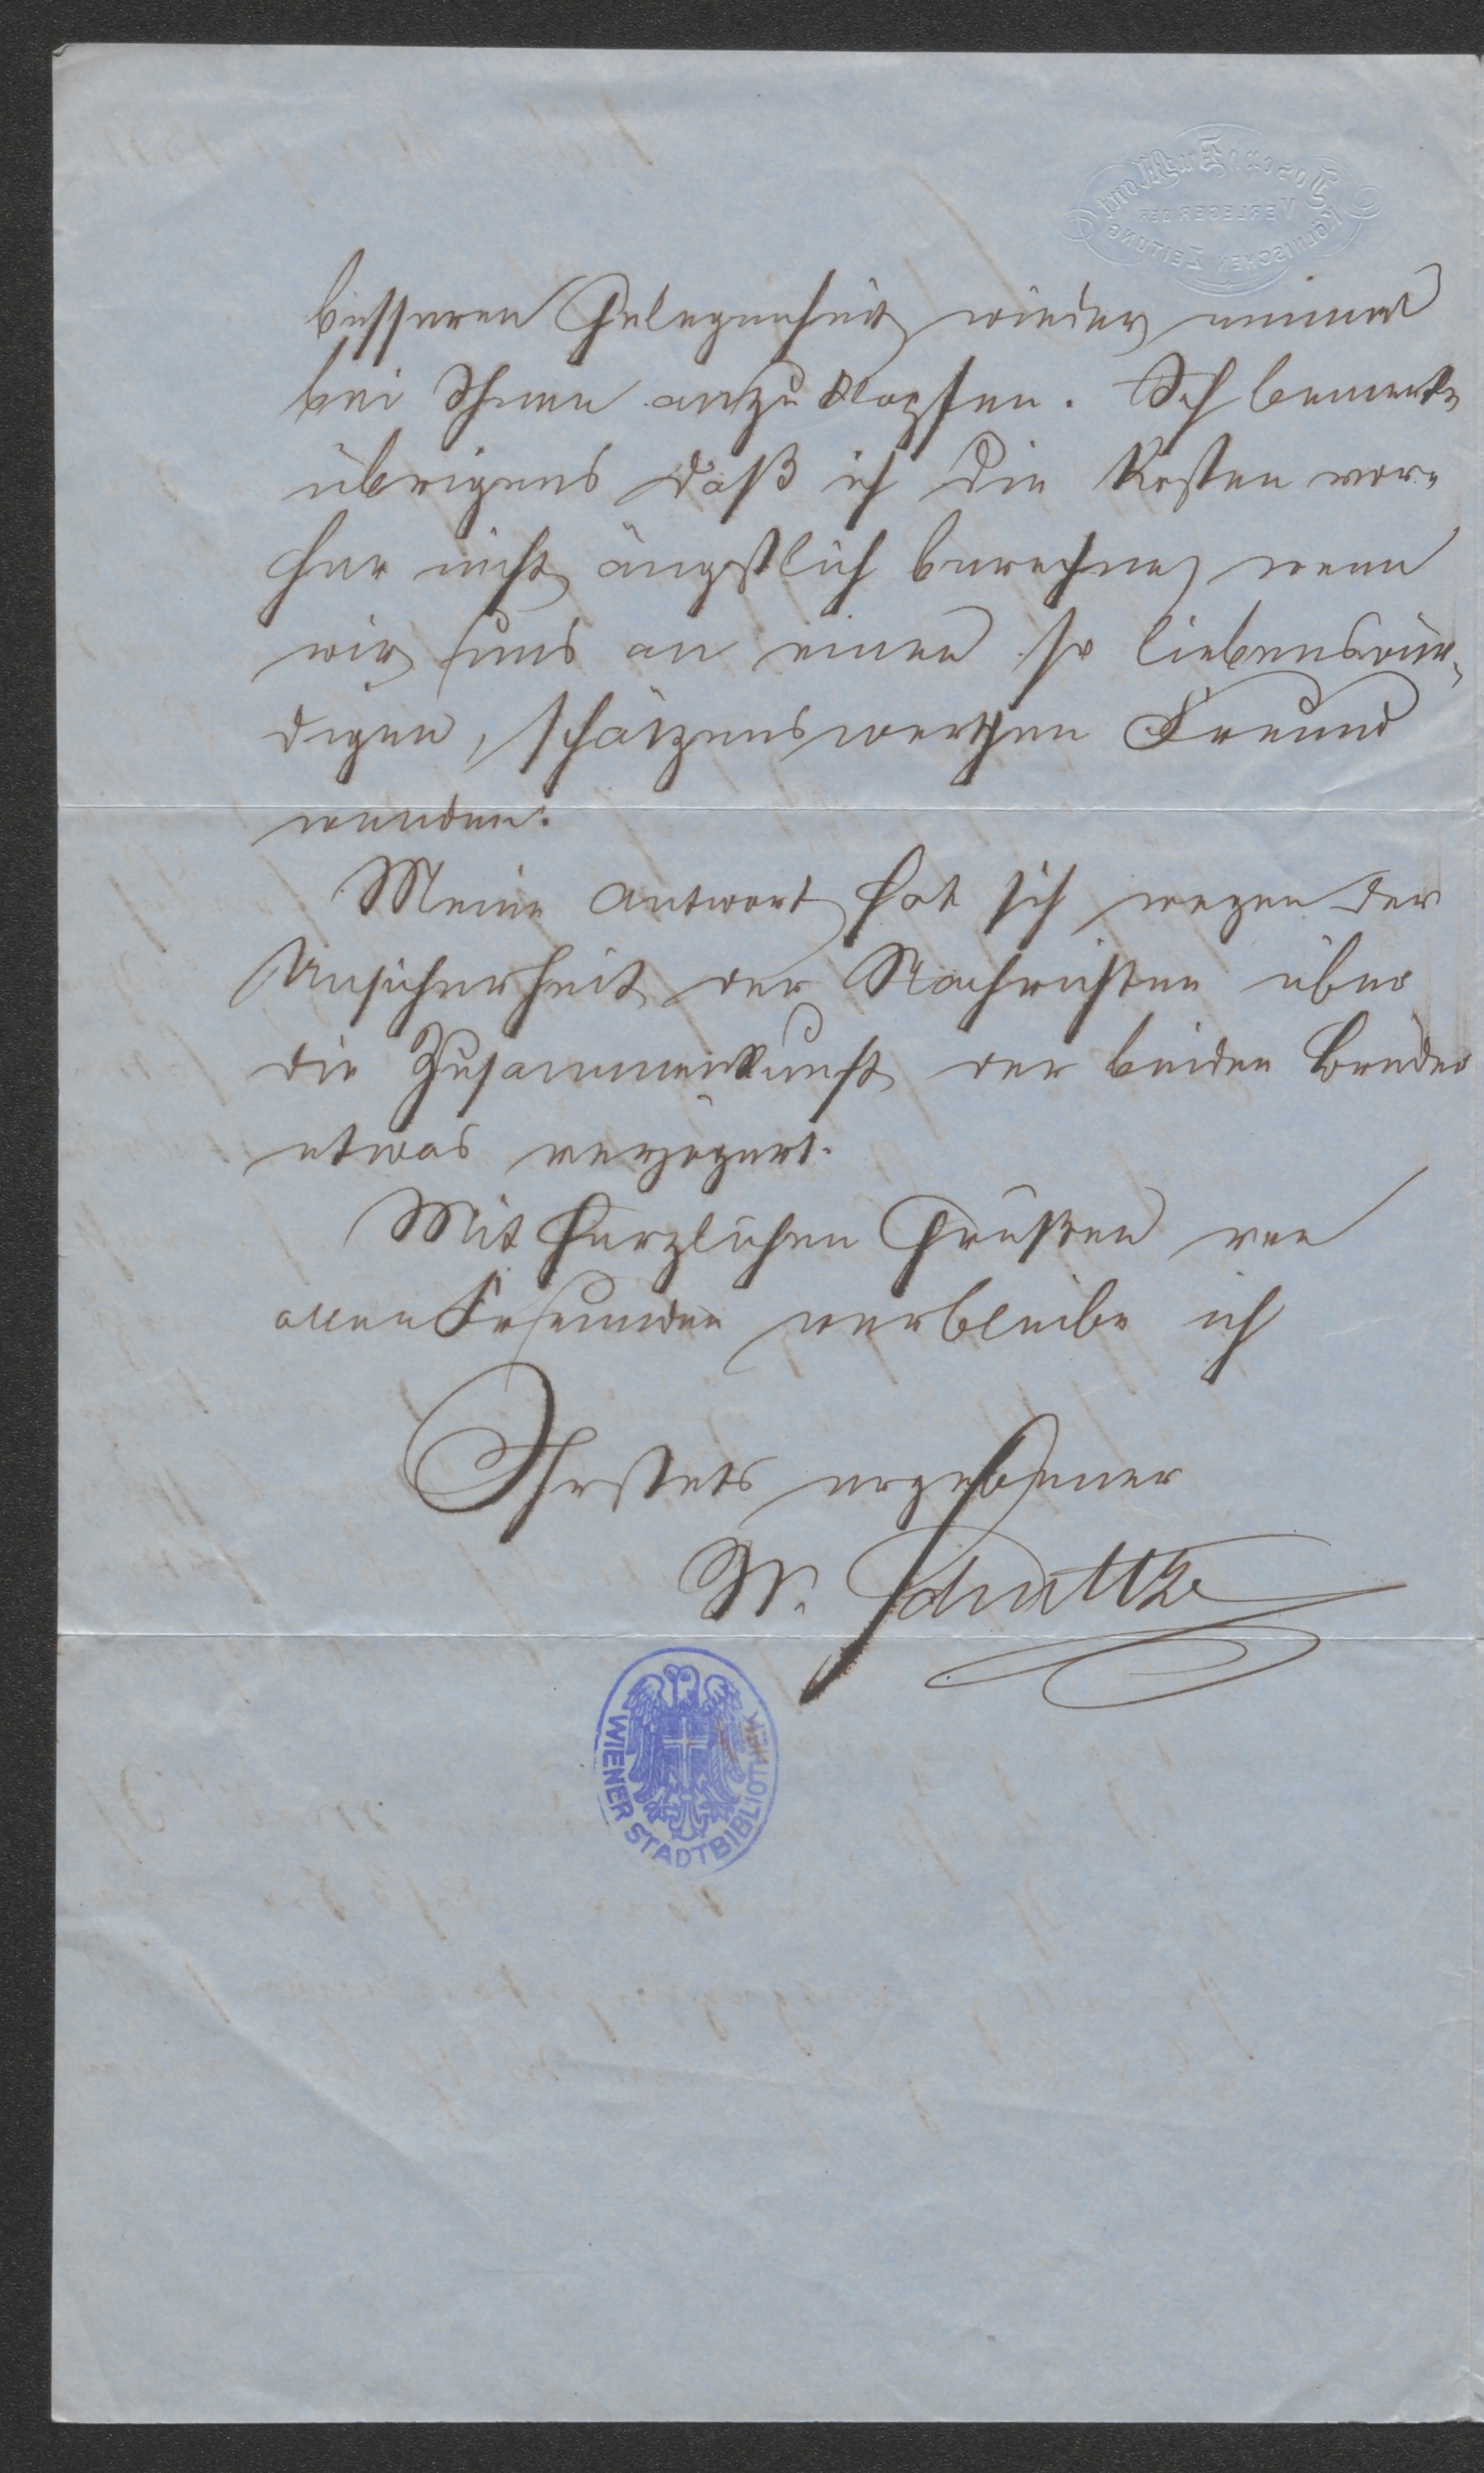 Joseph DuMont
VERLEGER DER
KÖLNISCHEN ZEITUNG
besseren Gelegenheit wieder einmal
bei Ihnen anzuklopfen. Ich bemerke
übrigens daß ich die Kosten vor-
her nicht ängstlich berechne, wenn
wir uns an einen so liebenswür-
digen, schätzenswerthen Freund
wenden.
Meine Antwort hat sich wegen der
Unsicherheit der Nachrichten über
die Zusammenkunft der beiden Brüder
etwas verzögert.
Mit herzlichen Grüßen von
allen Freunden verbleibe ich
Ihr stets ergebener
W. Schultze
WIENER STADTBIBLIOTHEK